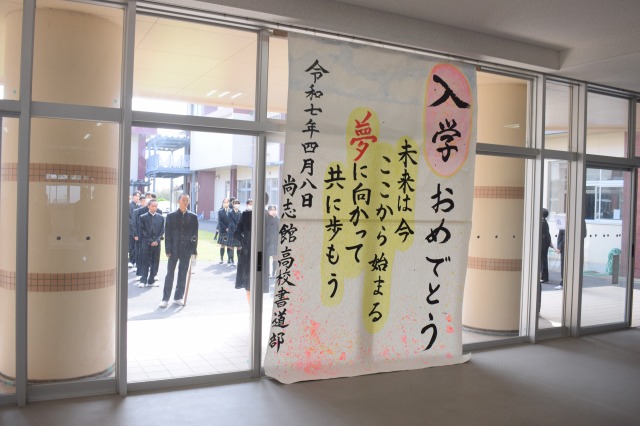 入学おめでとう
未来は今
ここから始まる
夢に向かって
共に歩もう
令和七年四月八日
尚志館高校書道部